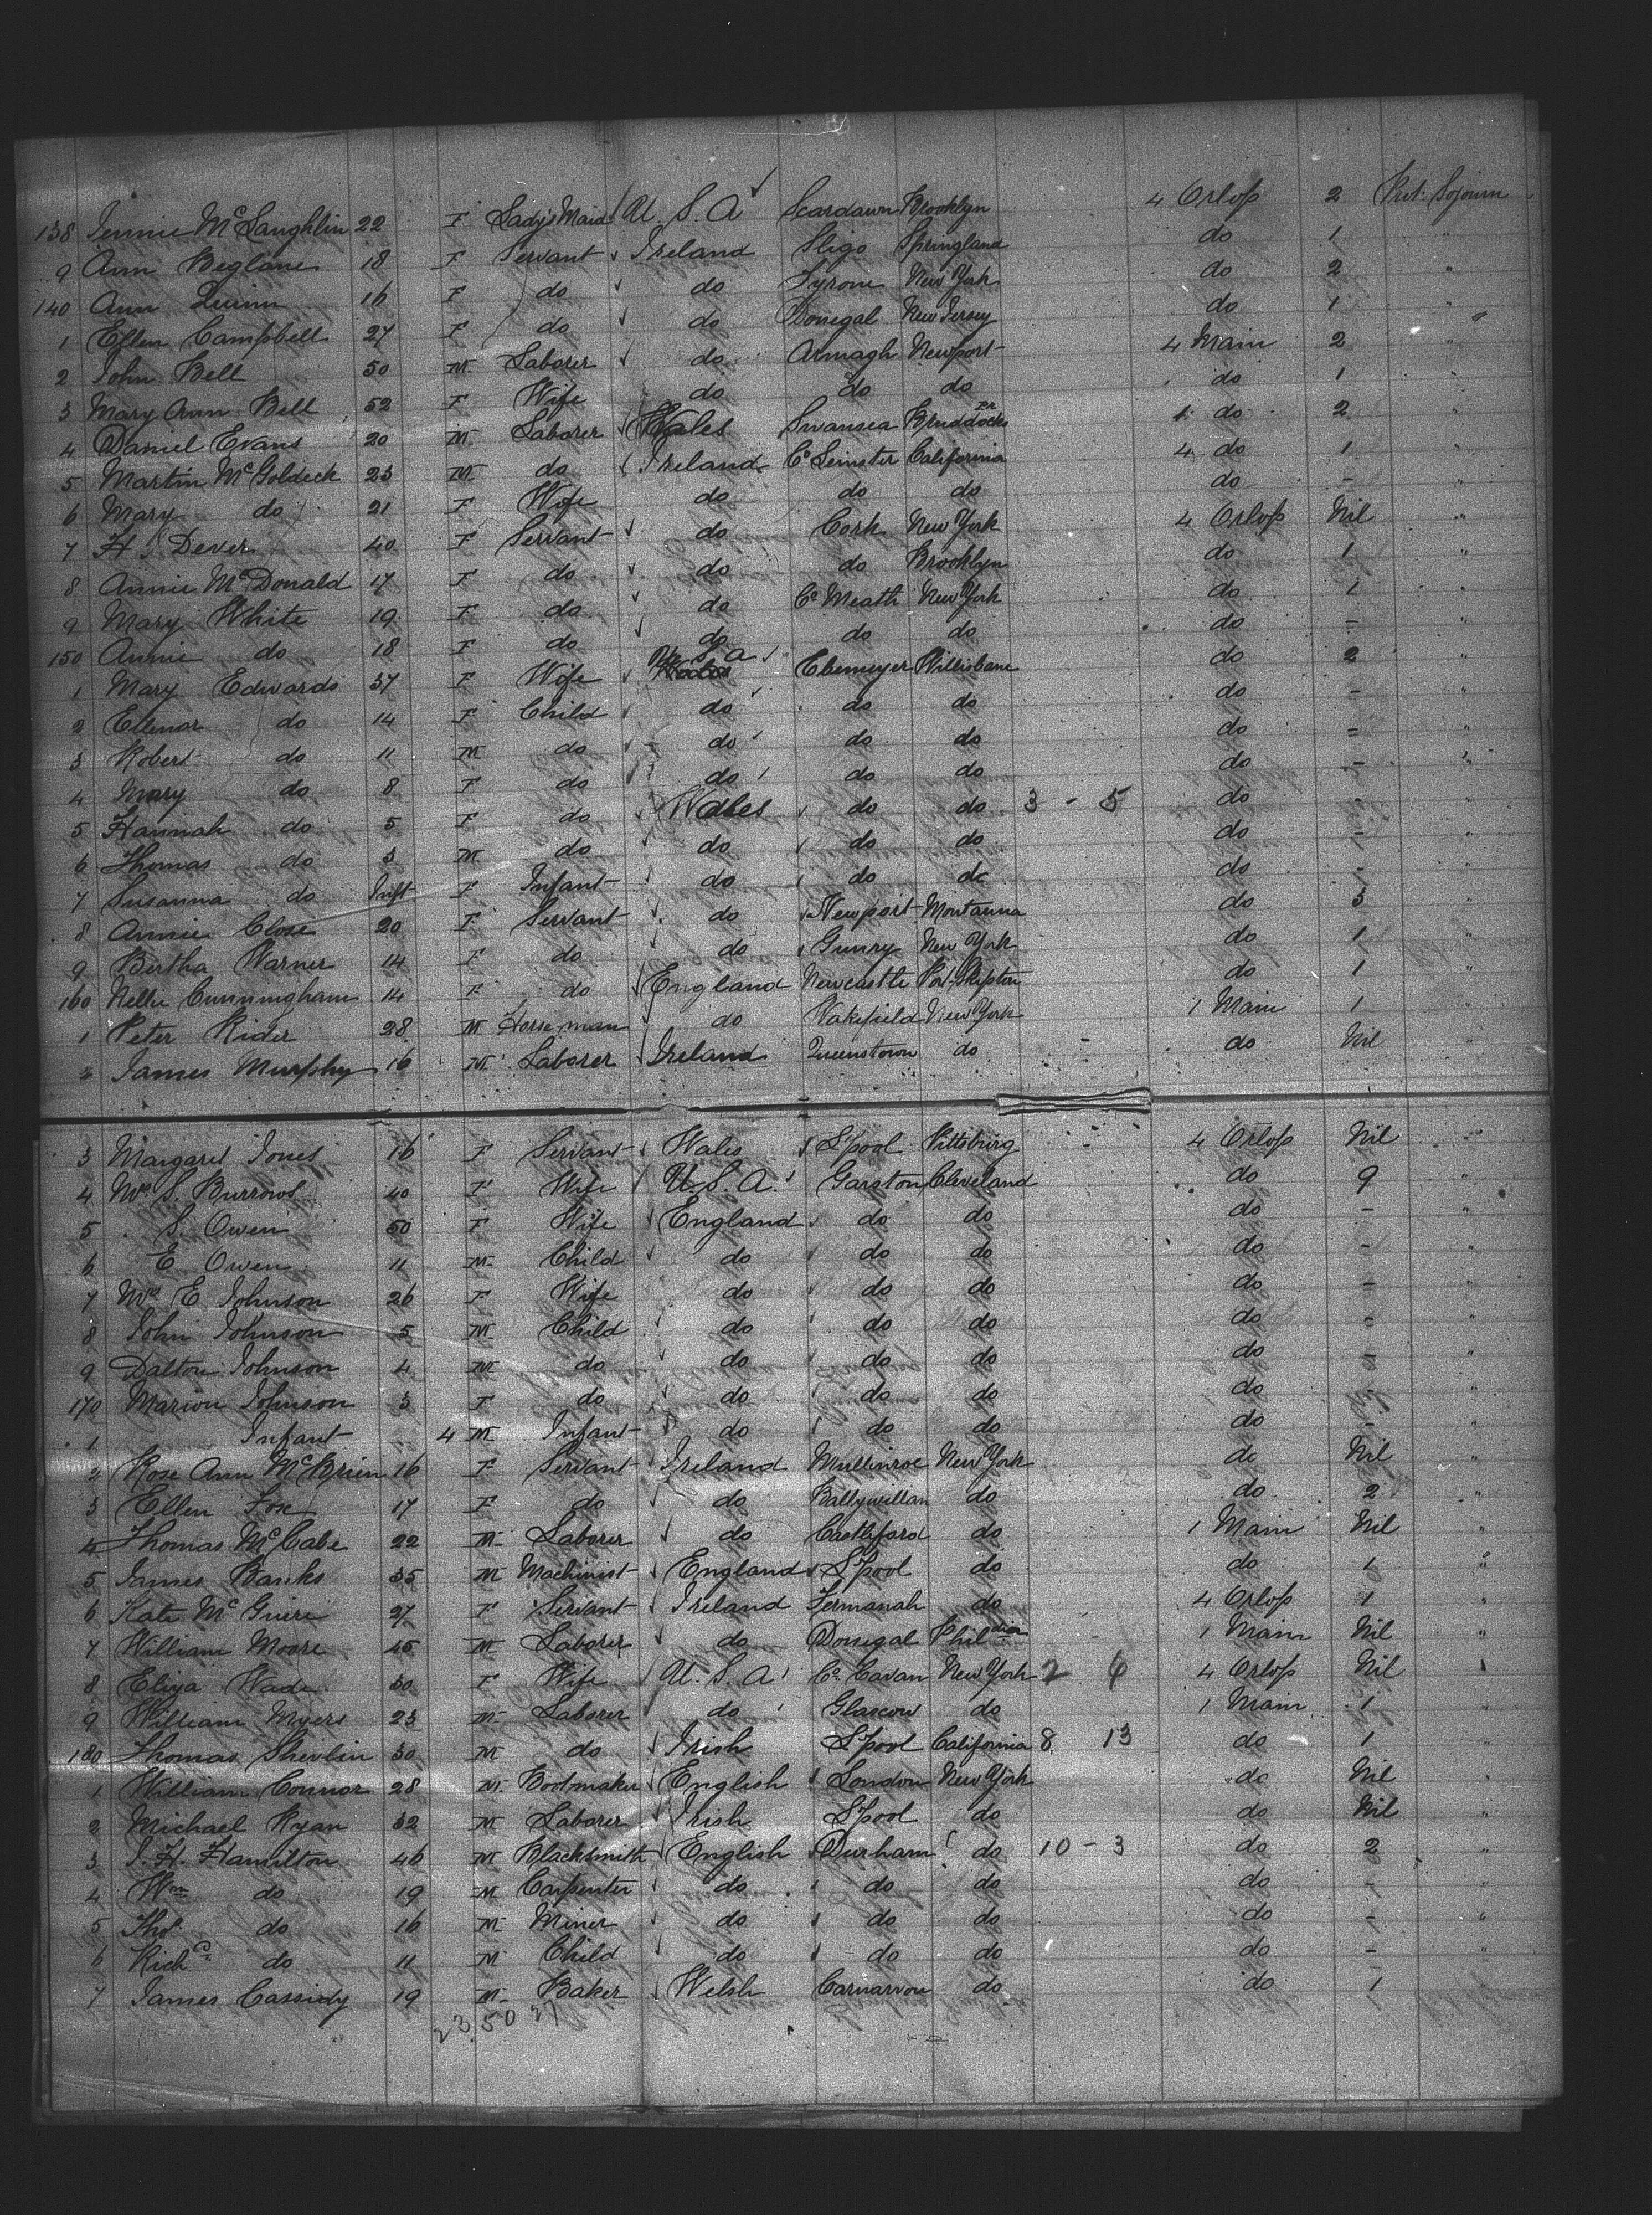 138 Jennie McLaughlin 22 F Lady's Maid U.S.A Scardawn Brooklyn 4 Orlop 2 Prot. Sojourn
9 Ann Beglane 18 F Servant Ireland Sligo Springland do 1 "
140 Ann Quinn 16 F do do Tyrone New York do 2 "
1 Ellen Campbell 27 F do do Donegal New Jersey do 1 "
2 John Bell 50 M Laborer do Armagh Newport 4 Main 2 "
3 Mary Ann Bell 52 F Wife do do do do 1 "
4 Daniel Evans 20 M Laborer Wales Swansea Bruddocks 1 do 2 "
5 Martin McGoldeck 23 M do Ireland Co Leinster California 4 do 1 "
6 Mary do 21 F Wife do do do do - "
7 H Dever 40 F Servant do Cork New York 4 Orlop Nil "
8 Annie McDonald 17 F do do do Brooklyn do 1 "
9 Mary White 19 F do do Co Meath New York do 1 "
150 Annie do 18 F do do do do do - "
1 Mary Edwards 37 F Wife U S A Ebemeyer Willisbane do 2 "
2 Ellenor do 14 F Child do do do do - "
3 Robert do 11 M do do do do do - "
4 Mary do 8 F do do do do do - "
5 Hannah do 5 F do Wales do do 3 - 5 do - "
6 Thomas do 3 M do do do do do - "
7 Susanna do Inft F Infant do do do do - "
8 Annie Close 20 F Servant do Newport Montanna do 3 "
9 Bertha Warner 14 F do do Gunry New York do 1 "
160 Nellie Cunningham 14 F do England Newcastle Port Shipton do 1 "
1 Peter Rider 28 M Horseman do Wakefield New York 1 Main 1 "
2 James Murphy 16 M Laborer Ireland Queenstown do do Nil
3 Margaret Jones 16 F Servant Wales L'pool Pittsburg 4 Orlop Nil "
4 Mrs S. Burrows 40 F Wife U.S.A. Garston Cleveland do 9 "
5 S. Owen 50 F Wife England do do do - "
6 E Owen 11 M Child do do do do - "
7 Mrs E Johnson 26 F Wife do do do do - "
8 John Johnson 5 M Child do do do do - "
9 Dalton Johnson 4 M do do do do do - "
170 Marion Johnson 3 F do do do do do - "
1 Infant 4 M Infant do do do do - "
2 Rose Ann McBrien 16 F Servant Ireland Mullinroe New York do Nil "
3 Ellen Fox 17 F do do Ballywillan do do 2 "
4 Thomas McCabe 22 M Laborer do do 1 Main Nil "
5 James Banks 35 M Machinist England L'pool do do 1 "
6 Kate McGuire 27 F Servant Ireland Fermanah do 4 Orlop 1 "
7 William Moore 45 M Laborer do Donegal Phildia 1 Main Nil "
8 Eliza Wade 30 F Wife U.S.A Co Cavan New York 2 6 4 Orlop Nil "
9 William Myers 23 M Laborer do Glascow do 1 Main 1 "
180 Thomas Shevlin 30 M do Irish L'pool California 8 13 do 1 "
1 William Connor 28 M Bootmaker English London New York do Nil "
2 Michael Ryan 32 M Laborer Irish L'pool do do Nil "
3 J. H. Hamilton 46 M Blacksmith English Durham do 10 - 3 do 2 "
4 Wm do 19 M Carpenter do do do do - "
5 Thos do 16 M Miner do do do do - "
6 Richd do 11 M Child do do do do - "
7 James Cassidy 19 M Baker Welsh Carnarvon do do 1
23 50 27